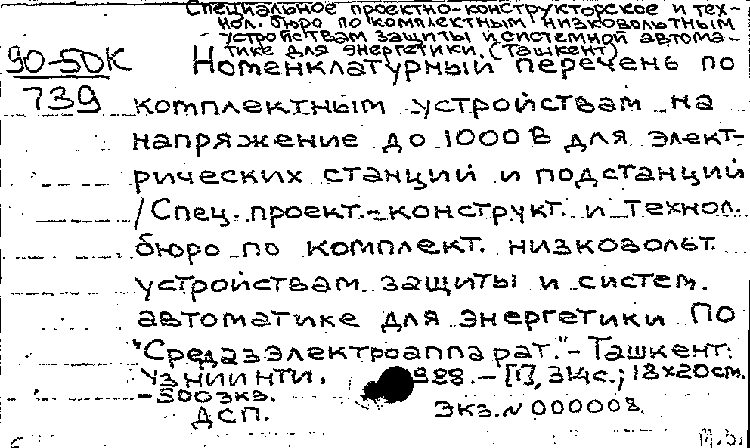 Специальное проектно-конструкторское и тех-
нол. бюро по комплектным низковольтным
устройствам защиты и системной автома-
тике для энергетики. (Ташкент)
90-5DK
739
Номенклатурный перечень по
комплектным устройствам на
напряжение до 1000 В для элект-
рических станций и подстанций
/Спец. проект.-конструкт. и технол.
бюро по комплект. низковольт.
устройствам защиты и систем.
автоматике для энергетики ПО
"Средазэлектроаппарат."- Ташкент:
УзНИИНТИ. 988. – [1], 314с.; 18х20см.
– 500 экз.
ДСП. Экз. N 000008